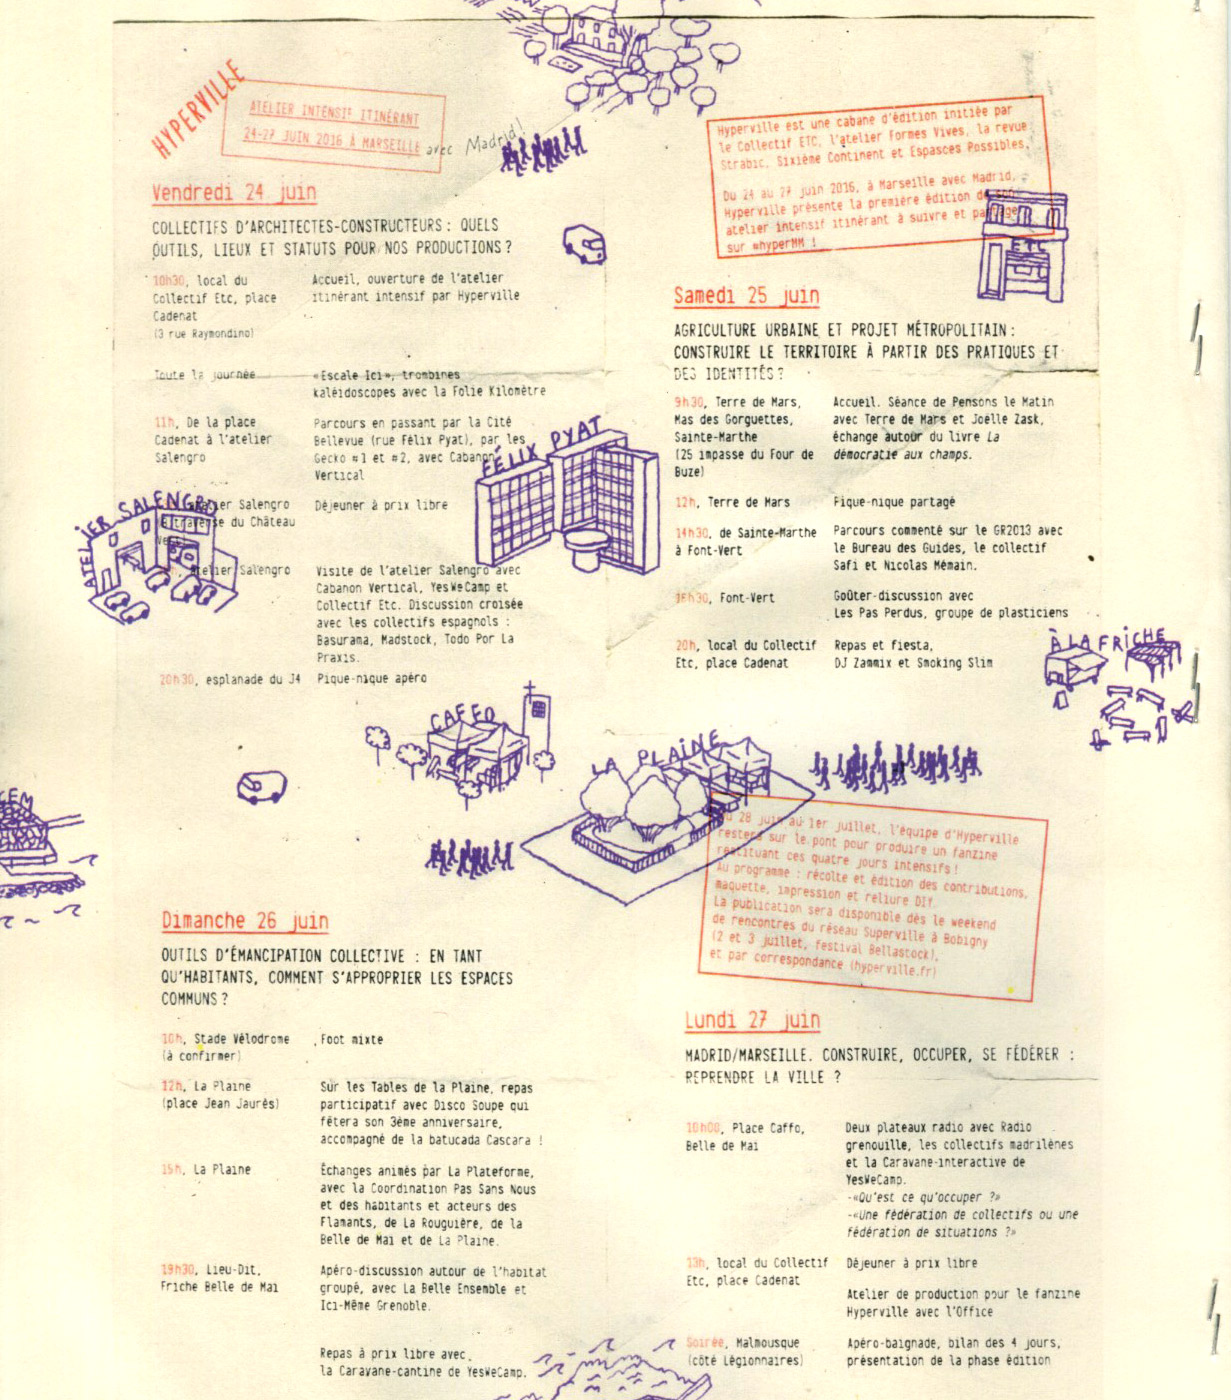 HYPERVILLE
ATELIER INTENSIF ITINÉRANT
24-27 JUIN 2016 À MARSEILLE
avec Madrid!
Vendredi 24 juin
COLLECTIFS D'ARCHITECTES-CONSTRUCTEURS : QUELS
OUTILS, LIEUX ET STATUTS POUR NOS PRODUCTIONS ?
10h30, local du
Collectif Etc, place
Cadenat
(3 rue Raymondino)
Accueil, ouverture de l'atelier
itinérant intensif par Hyperville
Toute la journée
«Escale Ici», trombines
kaléidoscopes avec la Folie Kilomètre
11h, De la place
Cadenat à l'atelier
Salengro
Parcours en passant par la Cité
Bellevue (rue Félix Pyat), par les
Gecko #1 et #2, avec Cabanon
Vertical
FÉLIX PYAT
ATELIER SALENGRO
Atelier Salengro
traverse du Château
Vert)
Déjeuner à prix libre
Atelier Salengro
Visite de l'atelier Salengro avec
Cabanon Vertical, YesWeCamp et
Collectif Etc. Discussion croisée
avec les collectifs espagnols :
Basurama, Madstock, Todo Por La
Praxis.
20h30, esplanade du J4
Pique-nique apéro
Hyperville est une cabane d'édition initiée par
le Collectif ETC, l'atelier Formes Vives, la revue
Strabic, Sixième Continent et Espasces Possibles.
Du 24 au 27 juin 2016, à Marseille avec Madrid,
Hyperville présente la première édition de son
atelier intensif itinérant à suivre et partager
sur #hyperMM !
ETC
Samedi 25 juin
AGRICULTURE URBAINE ET PROJET MÉTROPOLITAIN :
CONSTRUIRE LE TERRITOIRE À PARTIR DES PRATIQUES ET
DES IDENTITÉS ?
9h30, Terre de Mars,
Mas des Gorguettes,
Sainte-Marthe
(25 impasse du Four de
Buze)
Accueil. Séance de Pensons le Matin
avec Terre de Mars et Joëlle Zask,
échange autour du livre La
démocratie aux champs.
12h, Terre de Mars
Pique-nique partagé
14h30, de Sainte-Marthe
à Font-Vert
Parcours commenté sur le GR2013 avec
le Bureau des Guides, le collectif
Safi et Nicolas Mémain.
16h30, Font-Vert
Goûter-discussion avec
Les Pas Perdus, groupe de plasticiens
20h, local du Collectif
Etc, place Cadenat
Repas et fiesta,
DJ Zammix et Smoking Slim
À LA FRICHE
CAFFO
LA PLAINE
Du 28 juin au 1er juillet, l'équipe d'Hyperville
restera sur le pont pour produire un fanzine
restituant ces quatre jours intensifs !
Au programme : récolte et édition des contributions,
maquette, impression et reliure DIY.
La publication sera disponible dès le weekend
de rencontres du réseau Superville à Bobigny
(2 et 3 juillet, festival Bellastock),
et par correspondance (hyperville.fr)
Dimanche 26 juin
OUTILS D'ÉMANCIPATION COLLECTIVE : EN TANT
QU'HABITANTS, COMMENT S'APPROPRIER LES ESPACES
COMMUNS ?
10h, Stade Vélodrome
(à confirmer)
Foot mixte
12h, La Plaine
(place Jean Jaurès)
Sur les Tables de la Plaine, repas
participatif avec Disco Soupe qui
fêtera son 3ème anniversaire,
accompagné de la batucada Cascara !
15h, La Plaine
Échanges animés par La Plateforme,
avec la Coordination Pas Sans Nous
et des habitants et acteurs des
Flamants, de La Rouguière, de la
Belle de Mai et de La Plaine.
19h30, Lieu-Dit,
Friche Belle de Mai
Apéro-discussion autour de l'habitat
groupé, avec La Belle Ensemble et
Ici-Même Grenoble.
Repas à prix libre avec
la Caravane-cantine de YesWeCamp.
Lundi 27 juin
MADRID/MARSEILLE. CONSTRUIRE, OCCUPER, SE FÉDÉRER :
REPRENDRE LA VILLE ?
10h00, Place Caffo,
Belle de Mai
Deux plateaux radio avec Radio
grenouille, les collectifs madrilènes
et la Caravane-interactive de
YesWeCamp.
-«Qu'est ce qu'occuper ?»
-«Une fédération de collectifs ou une
fédération de situations ?»
13h, local du Collectif
Etc, place Cadenat
Déjeuner à prix libre
Atelier de production pour le fanzine
Hyperville avec l'Office
Soirée, Malmousque
(côté Légionnaires)
Apéro-baignade, bilan des 4 jours,
présentation de la phase édition